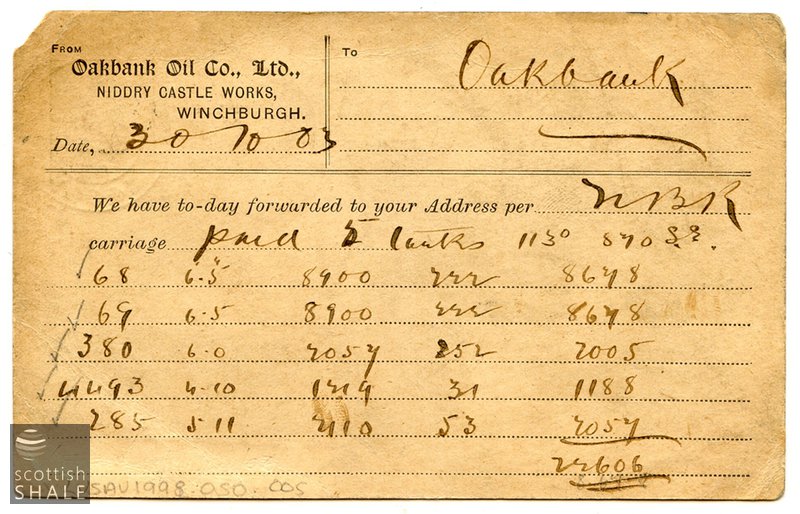 FROM
Oakbank Oil Co., Ltd.,
NIDDRY CASTLE WORKS,
WINCHBURGH.
Date, 30 10 03
To
Oakbank
We have to-day forwarded to your Address per NBR
carriage paid 5 tanks 1130 870
68 6.5 8900 222 8678
69 6.5 8900 222 8678
380 6.0 2057 2005
4493 4.10 1219 31 1188
285 5 11 2110 53 2057
22606
LSAV1998.050.005
scottish
SHALE